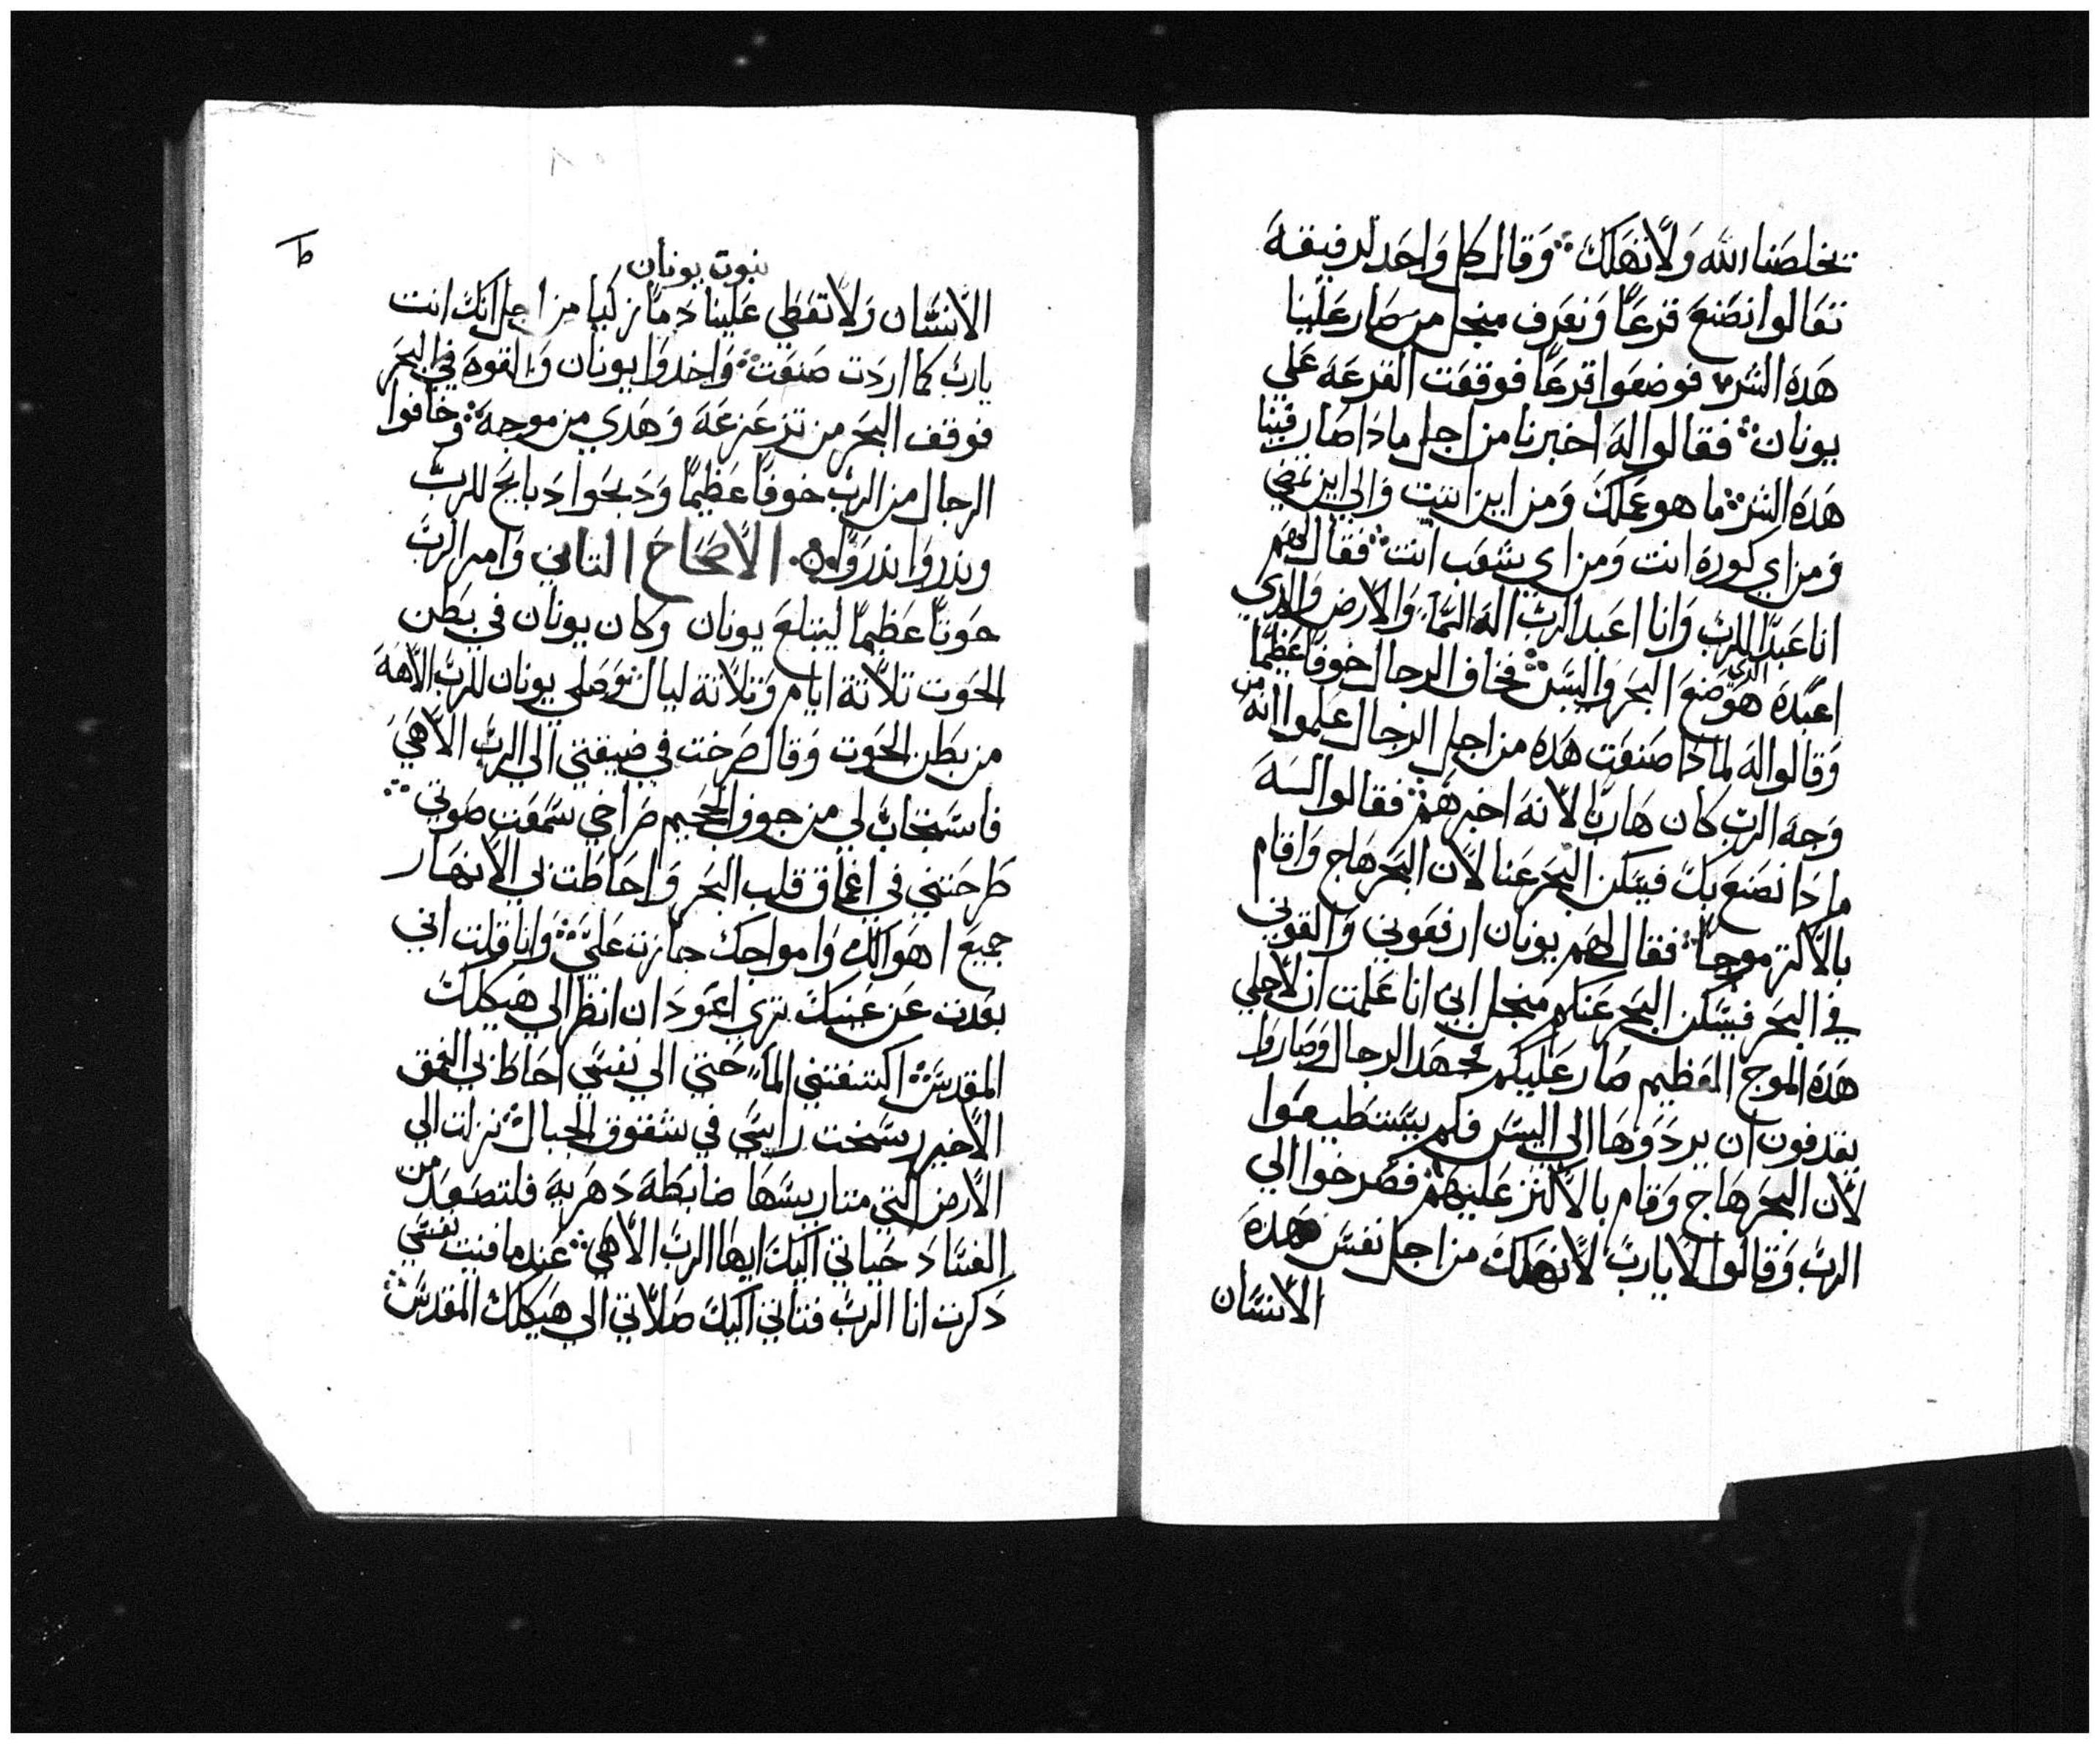 يخلصنا الله ولا نهلك ۞ وقال كل واحد لرفيقه
تعالوا نصنع قرعاً ونعرف منجل من صار علينا
هده الشر فوضعوا قرعاً فوقعت القرعه علي
يونان ۞ فقالوا له اخبرنا من اجل مادا صار فينا
هده الشر ۞ ما هو عملك ومن اين اتيت والي اين تمضي
ومن اي كوره انت ومن اي شعب انت ۞ فقال لهم
انا عبد للرب وانا اعبد الرب اله السما والارض والدي
اعبده هو الدي صنع البحر واليبس ۞ فخاف الرجال خوفاً عظيماً
وقالوا له لمادا صنعت هده من اجل الرجال علموا انه من
وجه الرب كان هارباً لانه اخبرهم ۞ فقالوا له
مادا نصنع بك فيسكن البحر عنا لان البحر هاج واقام
بالاكتر موجاً ۞ فقال لهم يونان ارفعوني والقوني
في البحر فيسكن البحر عنكم منجل اني انا علمت ان لاجلي
هده الموج العظيم صار عليكم فجهد الرجال وصاروا
يقدفون ان يردوها الي اليبس فلم يستطيعوا
لان البحر هاج وقام بالاكتر عليهم ۞ فصرخوا الي
الرب وقالوا لا يا رب لا نهلك من اجل نفس هده
الانسان
ط
نبوت يونان
الانسان ولا تعطي علينا دماً زكيا من اجل انك انت
يا رب كما اردت صنعت ۞ واخدوا يونان والقوه في البحر
فوقف البحر من تزعزعه وهدي من موجه ۞ وخافوا
الرجال من الرب خوفاً عظيماً ودبحوا دبايح للرب
وندروا ندروا ۞ الاصحاح التاني وامر الرب
حوتاً عظيماً ليبتلع يونان وكان يونان في بطن
الحوت تلاتة ايام وتلاتة ليال ۞ وصلي يونان للرب الاهه
من بطن الحوت وقال صرخت في ضيقتي الي الرب الاهي
فاستجاب لي من جوف الجحيم صراخي سمعت صوتي ۞
طرحتني في اعماق قلب البحر واحاطت بي الانهار
جميع اهوالك وامواجك جازت علي ۞ وانا قلت اني
بعدت عن عنيك تري اعود ان انظر الي هيكلك
المقدس ۞ اكتنفتني الما حتي الي نفسي احاط بي العمق
الاخير رسخت راسي في شقوق الجبال ۞ نزلت الي
الارض التي متاريسها ضابطه دهريه فلتصعد من
الفساد حياتي اليك ايها الرب الاهي ۞ عندما فنيت نفسي
دكرت انا الرب فتاتي اليك صلاتي الي هيكلك المقدس ۞